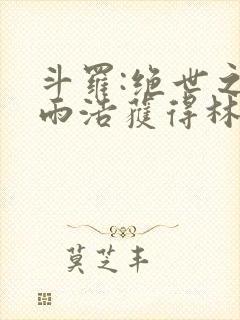 斗羅:绝世之
雨浩獲得林
莫芝丰